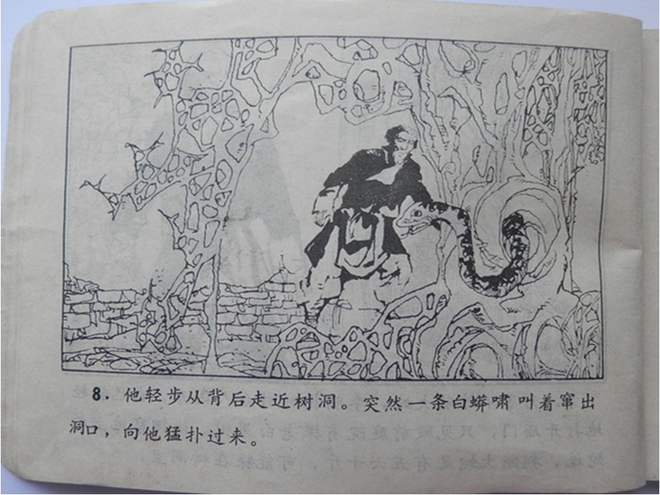 8. 他轻步从背后走近树洞。突然一条白蟒啸叫着窜出
洞口，向他猛扑过来。